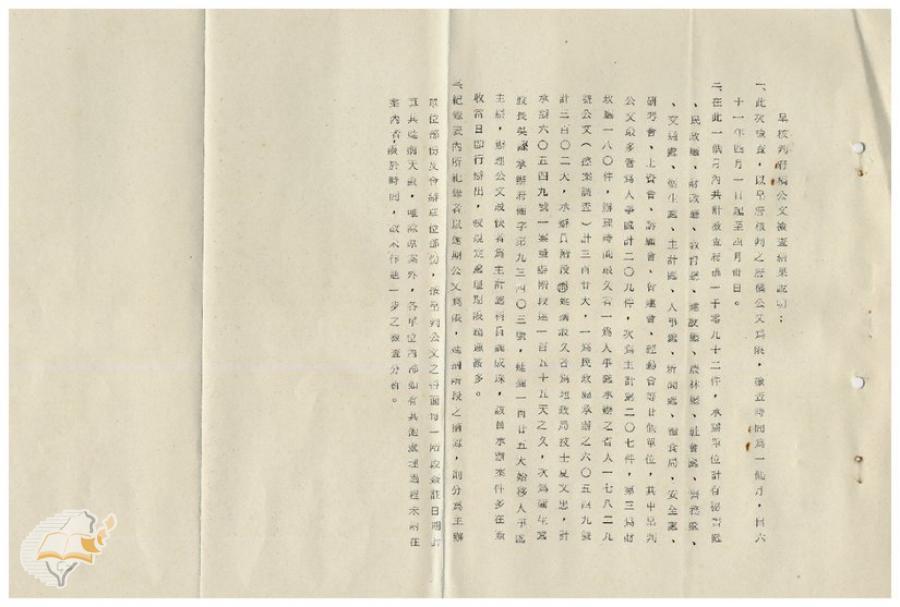 呈核判府稿公文檢查結果說明：
一、此次檢查，以呈層核判之府稿公文為限，檢查時間為一個月，自六
十一年四月一日起至四月卅日。
二、在此一個月內共計檢查府稿一千零九十二件，承辦單位計有秘書處
、民政廳、財政廳、教育廳、建設廳、農林廳、社會處、警務處、
、交通處、衛生處、主計處、人事處、新聞處、糧食局、安全處、
研考會、訴願會、經動會等廿個單位，其中呈判
公文最多者為人事處計二〇九件，次為主計處二〇七件，第三為財
政廳一八〇件，辦理時間最久者一為人事處承辦之省人一七八二九
號公文（控案調查）計三百廿天，一為民政廳承辦之六〇五四九號
計三百〇二天，承辦員階段延擱最久者為地政局技士夏文忠，計
承辦六〇五四九號一案承辦階段達一百五十五天之久，次為衛生處
股長吳 承辦府衛字第九三四〇三號，延擱一百廿五天始移人事處
主辦，辦理公文最快者為主計處科員 成 ，該員承辦案件多在來
收當日即行辦出，較規定處理期限縮短甚多。
三、紀錄表內所記錄者以逾期公文為限，延擱階段之 ，則分為主辦
單位部份及會辦單位部份，依呈判公文之各面每一階段簽註日期計
算其延擱天數，唯除原案外，各單位內部如有其他處理過程未附在
案內者，限於時間，故未作進一步之檢查分析。